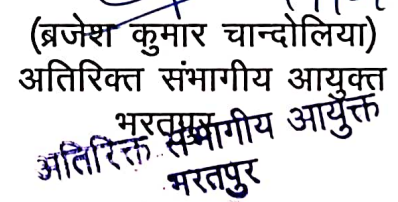 (ब्रजेश कुमार चान्दोलिया)
अतिरिक्त संभागीय आयुक्त
भरतपुर
अतिरिक्त संभागीय आयुक्त
भरतपुर